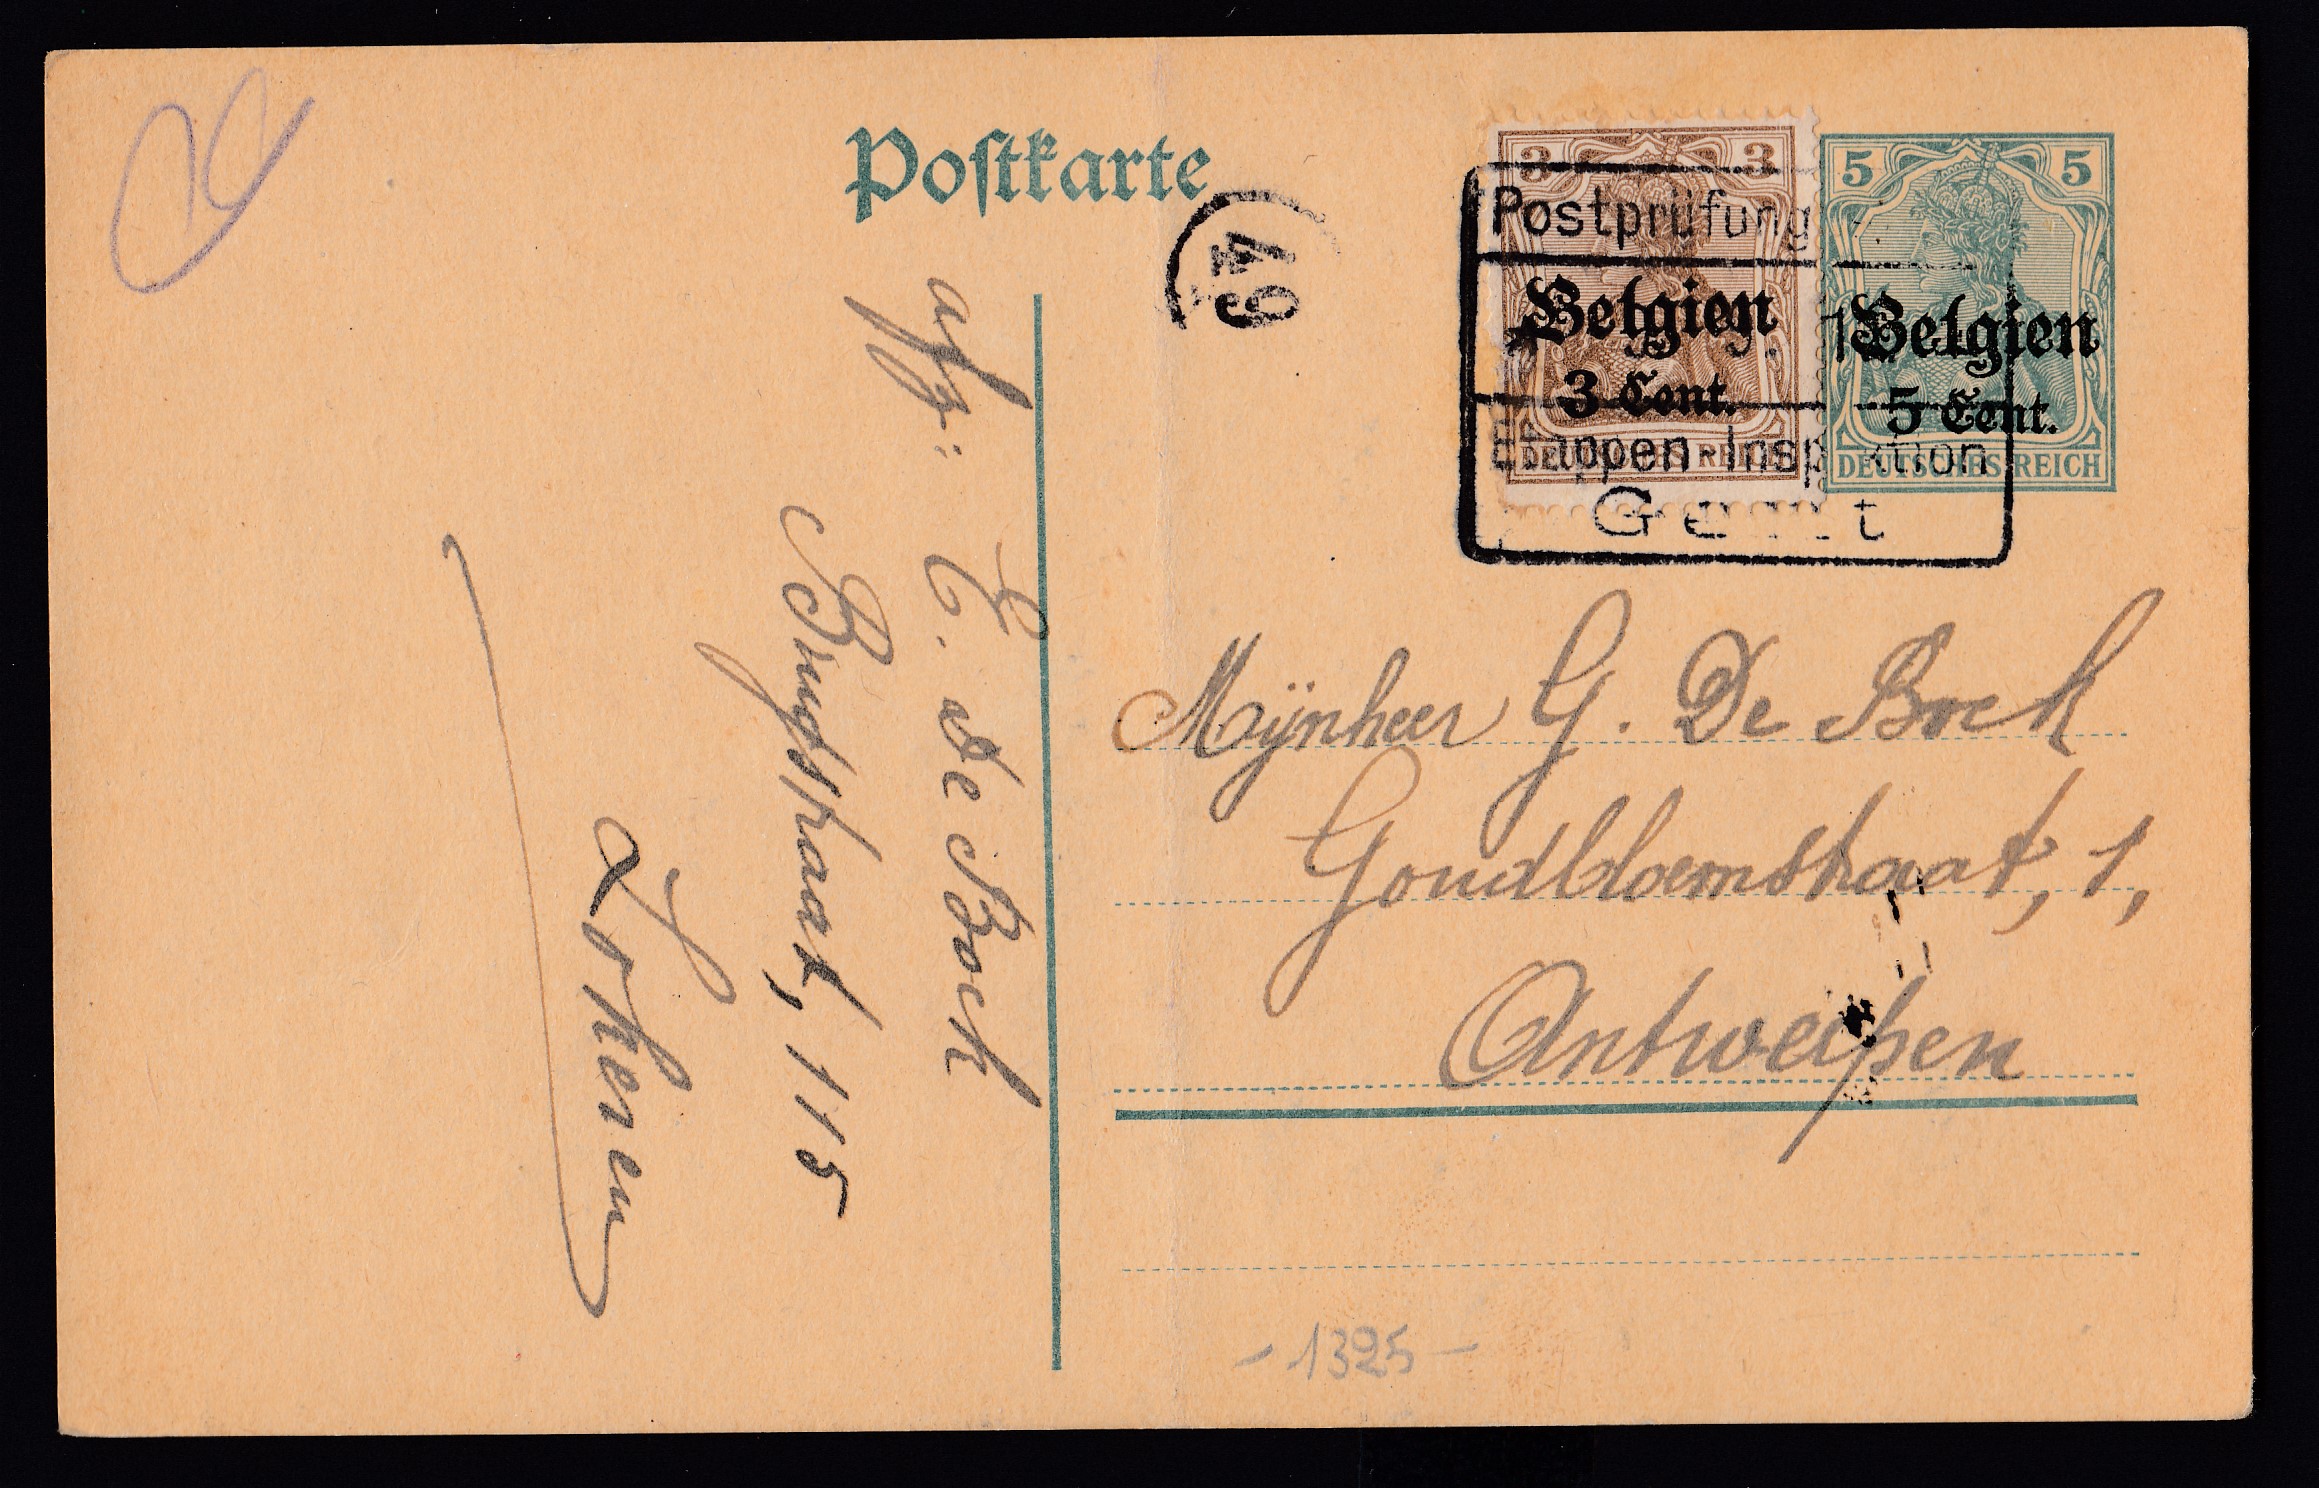 Postkarte
49
3 3
Belgien
3 Cent.
DEUTSCHES REICH
5 5
Belgien
5 Cent.
DEUTSCHES REICH
Postprüfung
Etappen-Inspektion
Gent
Mÿnheer G. De Bock
Goudbloemstraat, 1,
Antwerpen
afz:
E. De Bock
Brugstraat, 115
Lokeren
- 1325 -